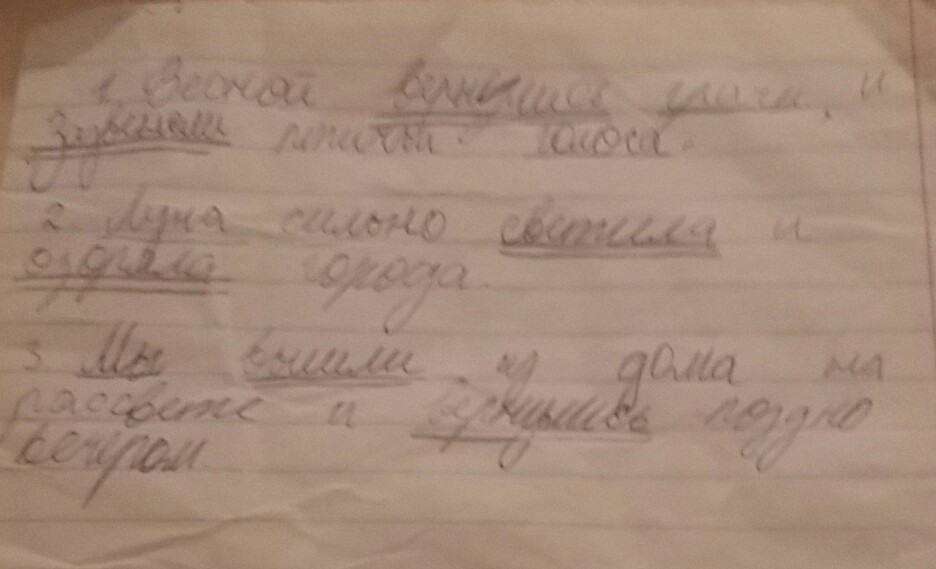 1. Весной вернулись грачи, и
зазвенели птичьи голоса.
2. Луна сильно светила и
озоряла города.
3. Мы вышли из дома на
рассвете и вернулись поздно
вечером